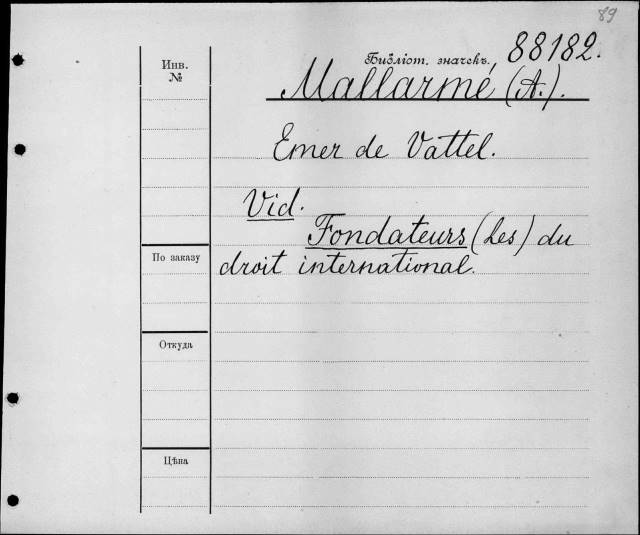 89
Инв. №
Библіот. значекъ, 88182.
Mallarmé (A.).
Emer de Vattel.
Vid.
Fondateurs (Les) du
droit international.
По заказу
Откуда
Цѣна